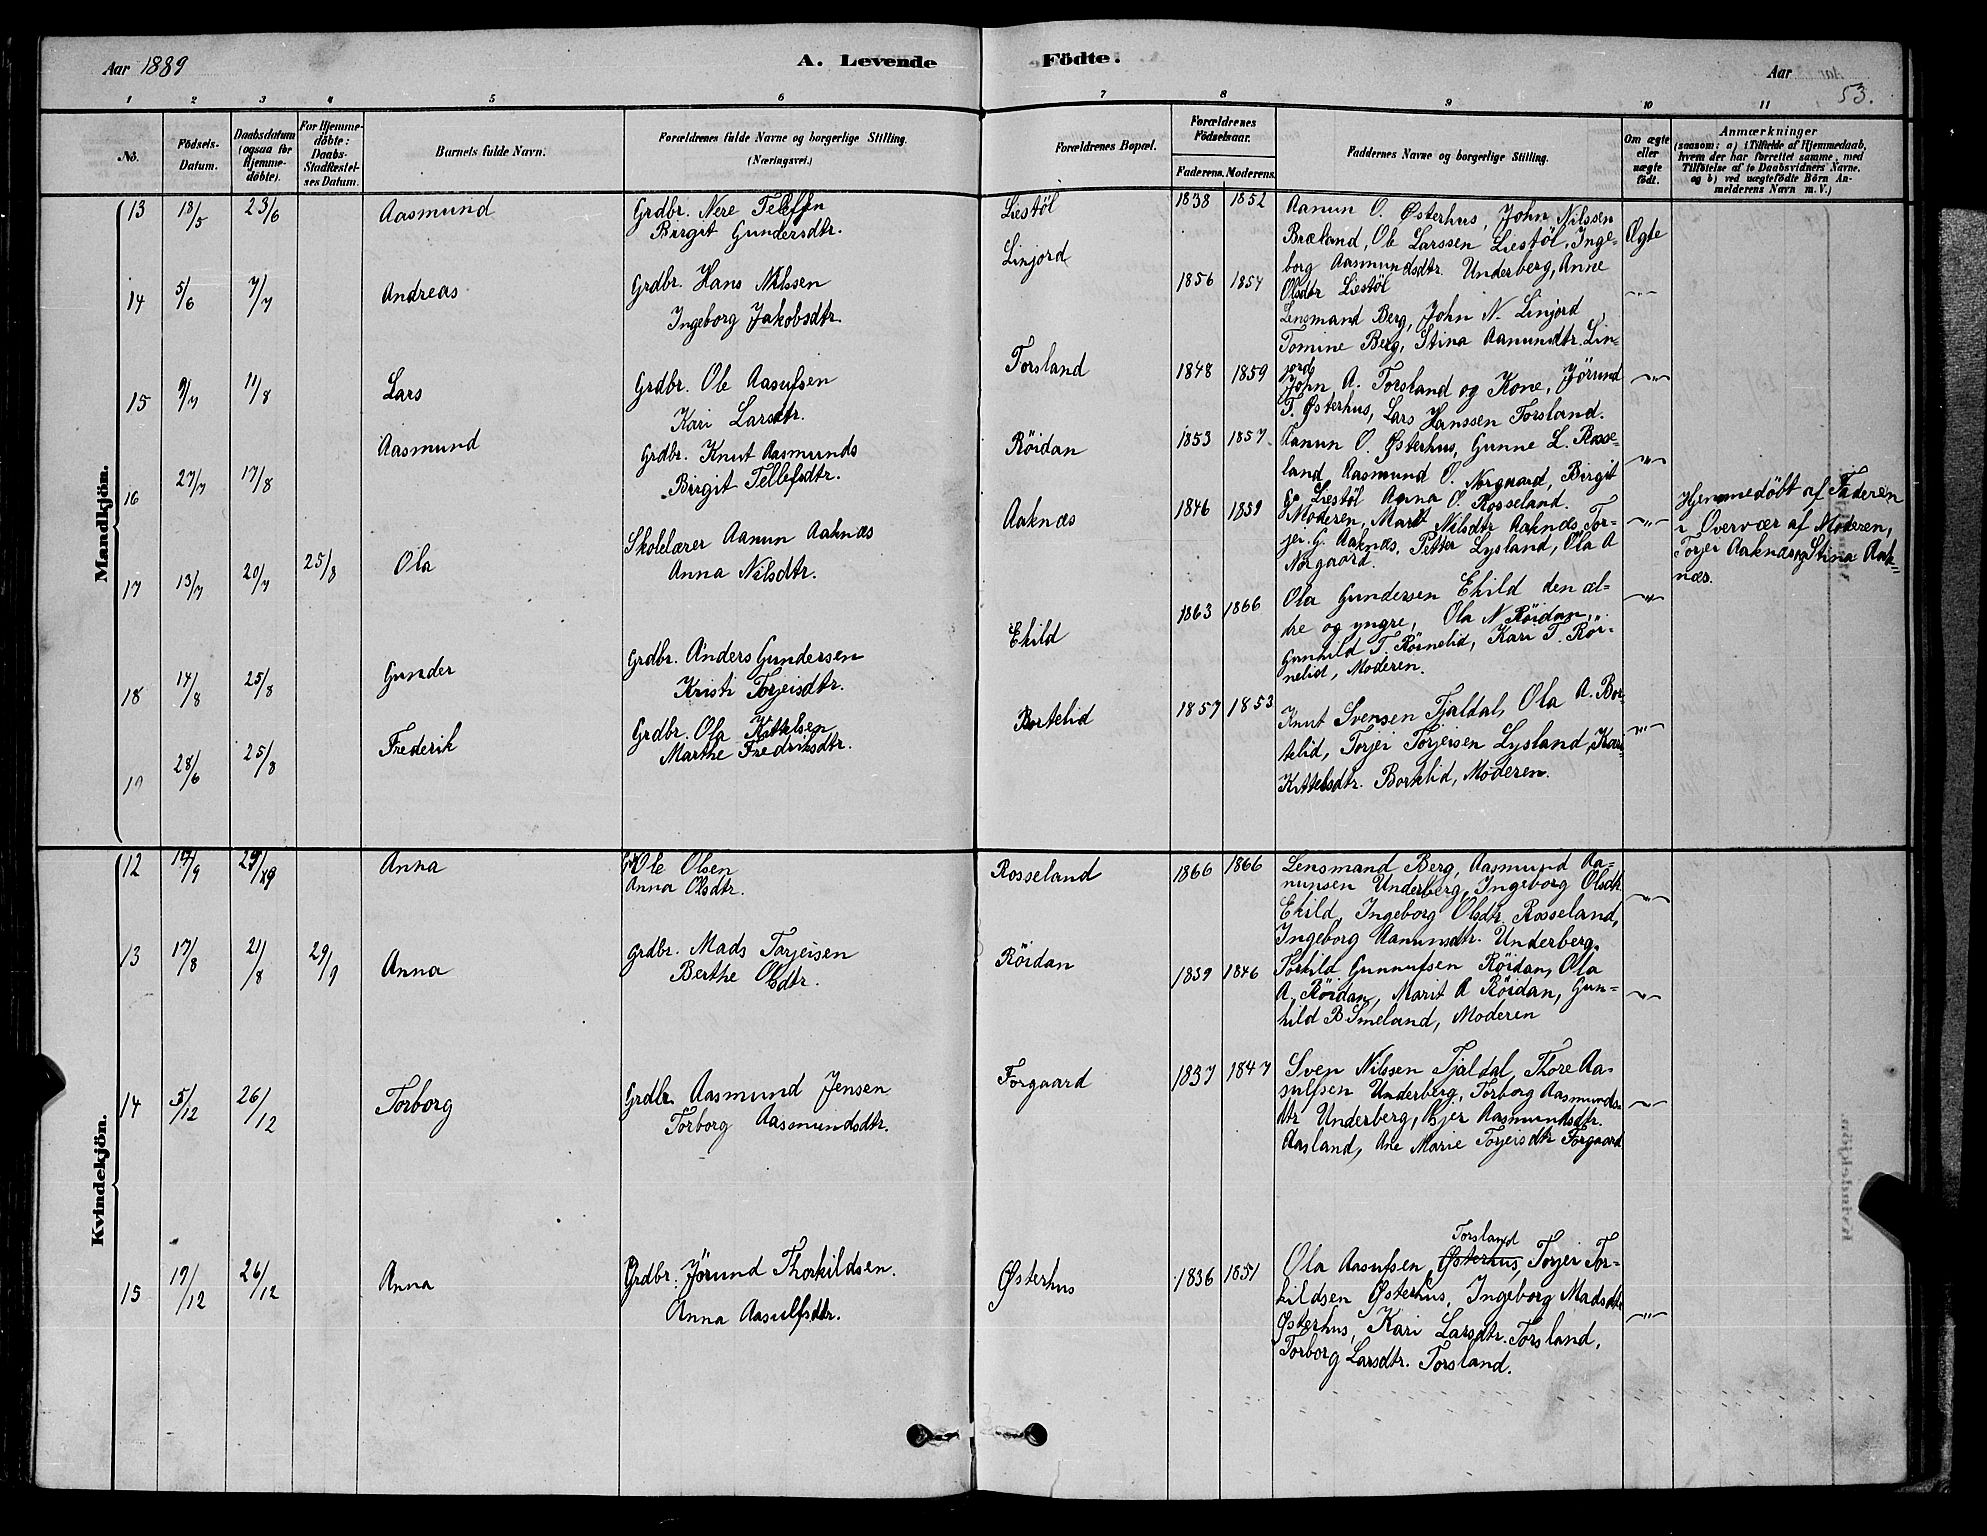 Aar 1889
A. Levende Födte.
Aar
53.
1 2 3 4 5 6 7 8 9 10 11
No.
Födsels-Datum.
Daabsdatum (ogsaa for Hjemme-döbte).
For Hjemme-döbte: Daabs-Stadfæstel-ses Datum.
Barnets fulde Navn.
Forældrenes fulde Navne og borgerlige Stilling.
(Næringsvei.)
Forældrenes Bopæl.
Forældrenes Födselsaar.
Faderens. Moderens.
Faddernes Navne og borgerlige Stilling.
Om ægte eller uægte födt.
Anmærkninger
(saasom: a) i Tilfælde af Hjemmedaab, hvem der har forrettet samme, med Tilföielse af to Daabsvidners Navne, og b) ved uægtefödte Börn An-melderens Navn m. V.)
Mandkjön.
13 18/5 23/6 Aasmund
Grdbr. Nere Tellefsen
Birgit Gundersdtr.
Liestöl 1838 1852
Aanun O. Østerhus, John Nilssen
Bræland, Ole Larssen Liestöl, Inge-
borg Aasmundsdtr. Underberg, Anne
Olsdtr Liestöl
Ægte
14 5/6 7/7 Andreas
Grdbr. Hans Nilssen
Ingeborg Jakobsdtr.
Linjord 1856 1854
Lensmand Berg, John N. Linjord
Tomine Berg, Stina Aanundtr. Lin-
jord
-"-
15 9/7 11/8 Lars
Grdbr. Ole Aasufsen
Kari Larsdtr.
Torsland 1848 1859
John A. Torsland og Kone, Jörund
T. Østerhus, Lars Hanssen Torsland.
-"-
16 27/7 17/8 Aasmund
Grdbr. Knut Aasmunds
Birgit Tellefsdtr.
Röidan 1853 1857
Aanun O. Østerhus, Gunne L. Rosse-
land, Aasmund O. Norgaard, Birgit
Liestöl Anna O. Rosseland.
-"-
17 13/7 20/7 25/8 Ola
Skolelærer Aanun Aaknæs
Anna Nilsdtr.
Aaknæs 1846 1859
Moderen, Marit Nilsdtr Aaknæs, Tor-
jer G. Aaknæs, Petter Lysland, Ola A
Norgaard.
-"-
Hjemmedöbt af Faderen
i Overvær af Moderen,
Torjer Aaknæs og Stina Aak-
næs.
18 14/8 25/8 Gunder
Grdbr. Anders Gundersen
Kristi Torjeisdtr.
Ehild 1863 1866
Ola Gundersen Ehild den æl-
dre og yngre, Ola N Röidan,
Gunhild T. Rörnelid, Kari T. Rör-
nelid, Moderen.
-"-
19 28/6 25/8 Frederik
Grdbr. Ola Kittelsen
Marthe Fredriksdtr.
Bortelid 1857 1853
Knut Svensen Tjaldal, Ola A. Bor-
telid, Torjer Torjersen Lysland, Kari
Kittelsdtr. Bortelid, Moderen.
-"-
Kvindekjön.
12 14/9 29/9 Anna
Ole Olsen
Anna Olsdtr.
Rosseland 1866 1866
Lensmand Berg, Aasmund Aa-
nunsen Underberg, Ingeborg Olsdtr
Ehild, Ingeborg Olsdtr. Rosseland,
Ingeborg Aanunsdtr. Underberg.
-"-
13 17/8 21/8 29/9 Anna
Grdbr. Mads Torjeisen
Berthe Olsdtr.
Röidan 1839 1846
Torkild Gunnufsen Röidan, Ola
A. Röidan, Marit A Röidan, Gun-
hild B Smeland, Moderen
-"-
14 5/12 26/12 Torborg
Grdbr. Aasmund Jensen
Torborg Aasmundsdtr.
Forgaard 1837 1847
Sven Nilssen Tjaldal, Thore Aa-
sulfsen Underberg, Torborg Aasmunds-
dtr Underberg, Bjer Aasmundsdtr.
Aasland, Ane Marie Torjeisdtr Forgaard
-"-
15 17/12 26/12 Anna
Grdbr. Jörund Thorkildsen.
Anna Aasulfsdtr.
Østerhus 1836 1851
Torsland
Ola Aasufsen Østerhus, Torjer Tor-
kildsen Østerhus, Ingeborg Madsdtr
Østerhus, Kari Larsdtr. Torsland,
Torborg Larsdtr. Torsland.
-"-